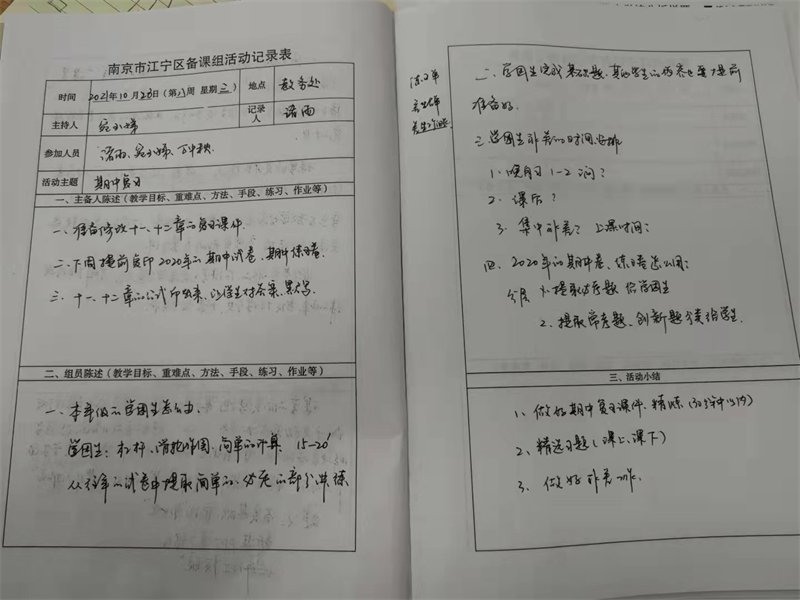 南京市江宁区备课组活动记录表
时间 2021年10月20日(第八周 星期三) 地点 教务处
主持人 记录人 诸雨
参加人员 诸雨、
活动主题 期中复习
一、主备人陈述(教学目标、重难点、方法、手段、练习、作业等)
一、准备修改十一、十二章的复习课件.
二、下周提前复印2020年的期中试卷、期中练习卷.
三、十一、十二章的公式印出来、让学生对答案、默写.
二、组员陈述(教学目标、重难点、方法、手段、练习、作业等)
一、本年级的学困生怎么办.
学困生:杠杆、滑轮作图、简单的计算. 15-20'
从往年的试卷中提取简单的、必克的部分训练
二、学困生完成基础题,其他学生的培养也要提前
准备好.
三、学困生补差的时间安排
1. 晚自习1-2问?
2. 课后?
3. 集中补差? 上课时间?
四、2020年的期中卷、练习卷怎么用?
分层 1. 提取必考题 给学困生
2. 提取常考题、创新题 分类给学生.
三、活动小结
1、做好期中复习课件. 精炼(30分钟以内)
2、精选习题(课上、课下)
3. 做好补差工作.